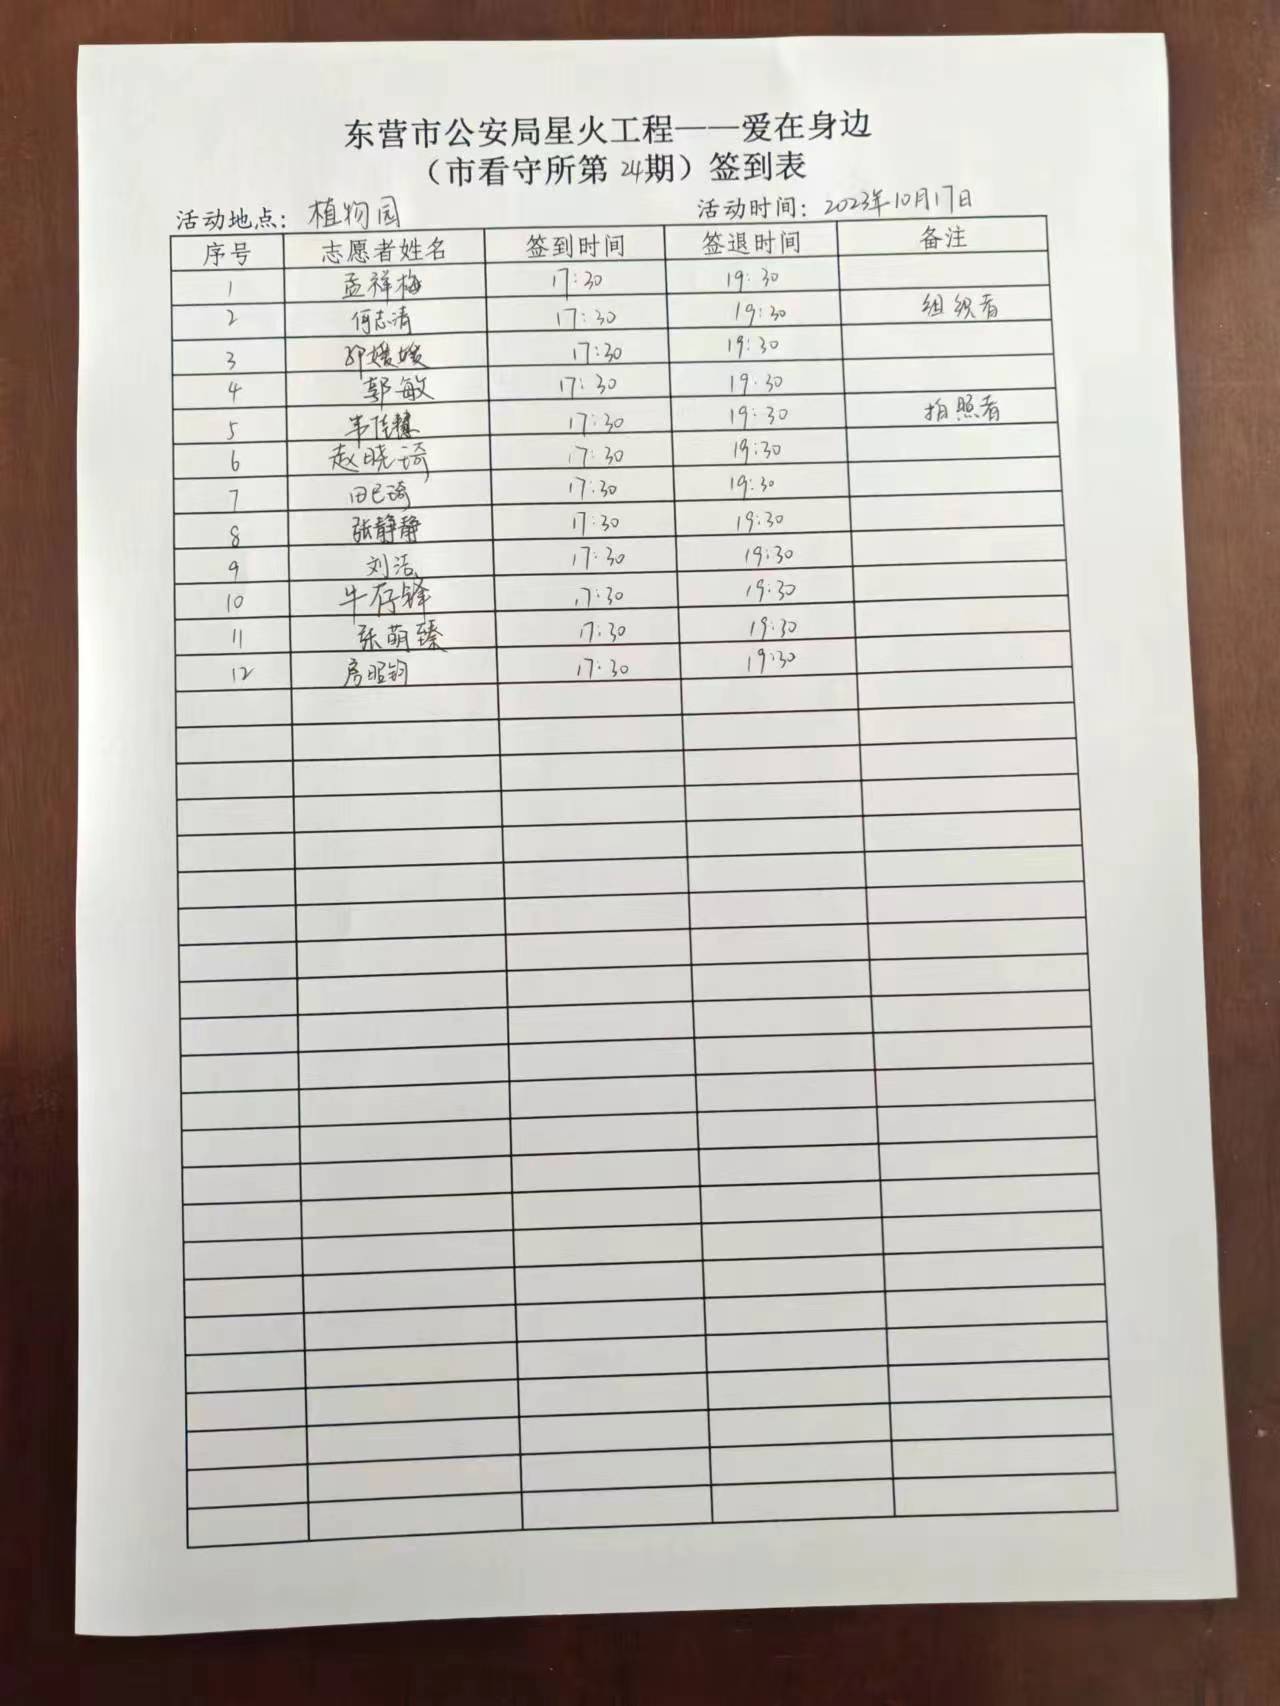 东营市公安局星火工程——爱在身边
（市看守所第24期）签到表
活动地点：植物园 活动时间：2023年10月17日
序号 志愿者姓名 签到时间 签退时间 备注
1 孟祥梅 17:30 19:30
2 何志清 17:30 19:30 组织者
3 媛媛 17:30 19:30
4 郭敏 17:30 19:30
5 韦佳慧 17:30 19:30 拍照者
6 赵晓琦 17:30 19:30
7 田巳琦 17:30 19:30
8 张静静 17:30 19:30
9 刘洁 17:30 19:30
10 牛存锋 17:30 19:30
11 张萌臻 17:30 19:30
12 房昭钧 17:30 19:30